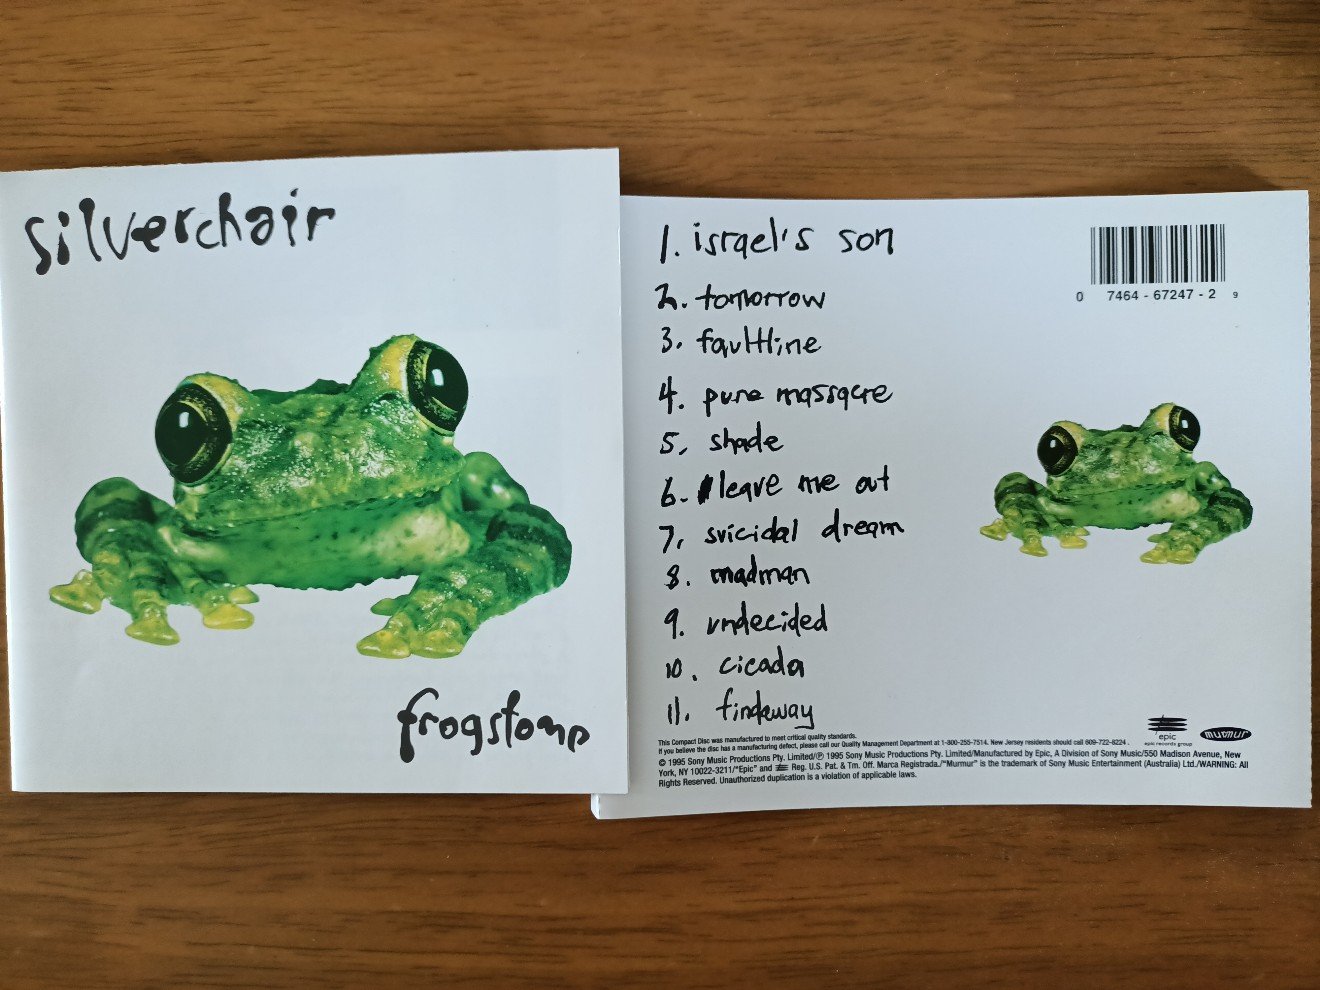 silverchair
frogstomp
1. israel's son
2. tomorrow
3. faultline
4. pure massacre
5. shade
6. leave me out
7. suicidal dream
8. madman
9. undecided
10. cicada
11. findaway
0 7464-67247-2 9
epic
epic records group
murmur
This Compact Disc was manufactured to meet critical quality standards.
If you believe the disc has a manufacturing defect, please call our Quality Management Department at 1-800-255-7514. New Jersey residents should call 609-722-8224.
© 1995 Sony Music Productions Pty. Limited/℗ 1995 Sony Music Productions Pty. Limited/Manufactured by Epic, A Division of Sony Music/550 Madison Avenue, New
York, NY 10022-3211/"Epic" and Reg. U.S. Pat. & Tm. Off. Marca Registrada./"Murmur" is the trademark of Sony Music Entertainment (Australia) Ltd./WARNING: All
Rights Reserved. Unauthorized duplication is a violation of applicable laws.